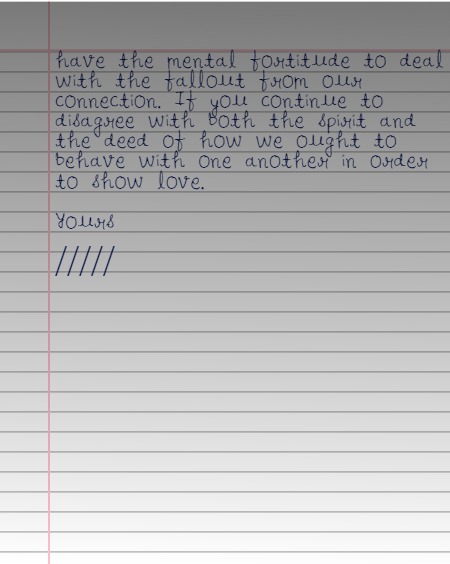 have the mental fortitude to deal
with the fallout from our
connection. If you continue to
disagree with both the spirit and
the deed of how we ought to
behave with one another in order
to show love.
Yours
/////